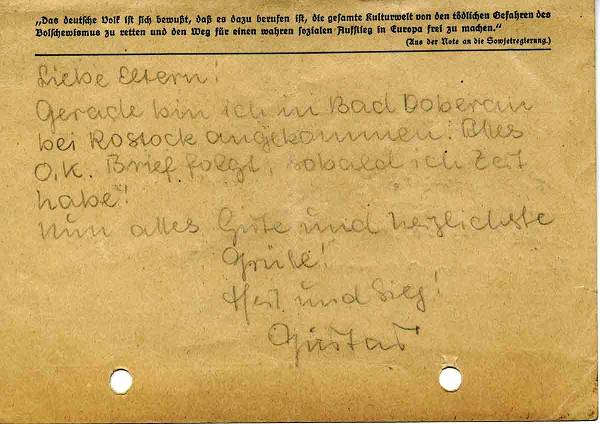 „Das deutsche Volk ist sich bewußt, daß es dazu berufen ist, die gesamte Kulturwelt von den tödlichen Gefahren des
Bolschewismus zu retten und den Weg für einen wahren sozialen Aufstieg in Europa frei zu machen.“
(Aus der Note an die Sowjetregierung.)
Liebe Eltern!
Gerade bin ich in Bad Doberan
bei Rostock angekommen. Alles
O.K. Brief folgt, sobald ich Zeit
habe!
Nun alles Gute und herzlichste
Grüße!
Heil und Sieg!
Gustav